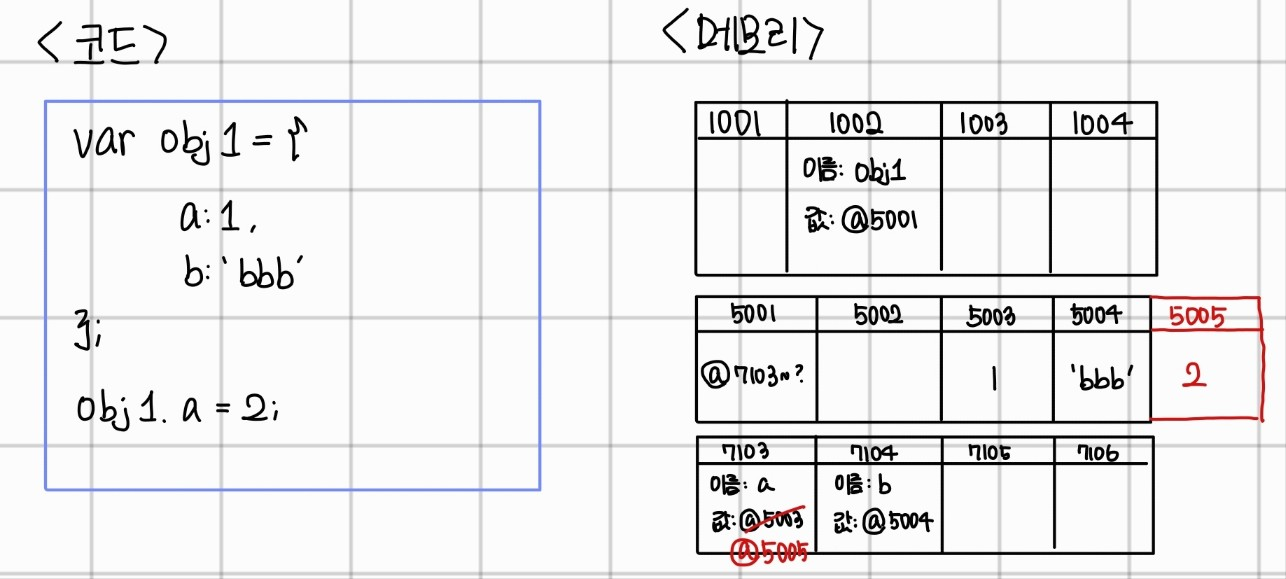 <코드>
var obj1 = {
a: 1,
b: 'bbb'
};
obj1. a = 2;
<메모리>
1001 1002 1003 1004
이름: obj1
값: @5001
5001 5002 5003 5004 5005
@7103~? 1 'bbb' 2
7103 7104 7105 7106
이름: a 이름: b
값: @5003 값: @5004
@5005